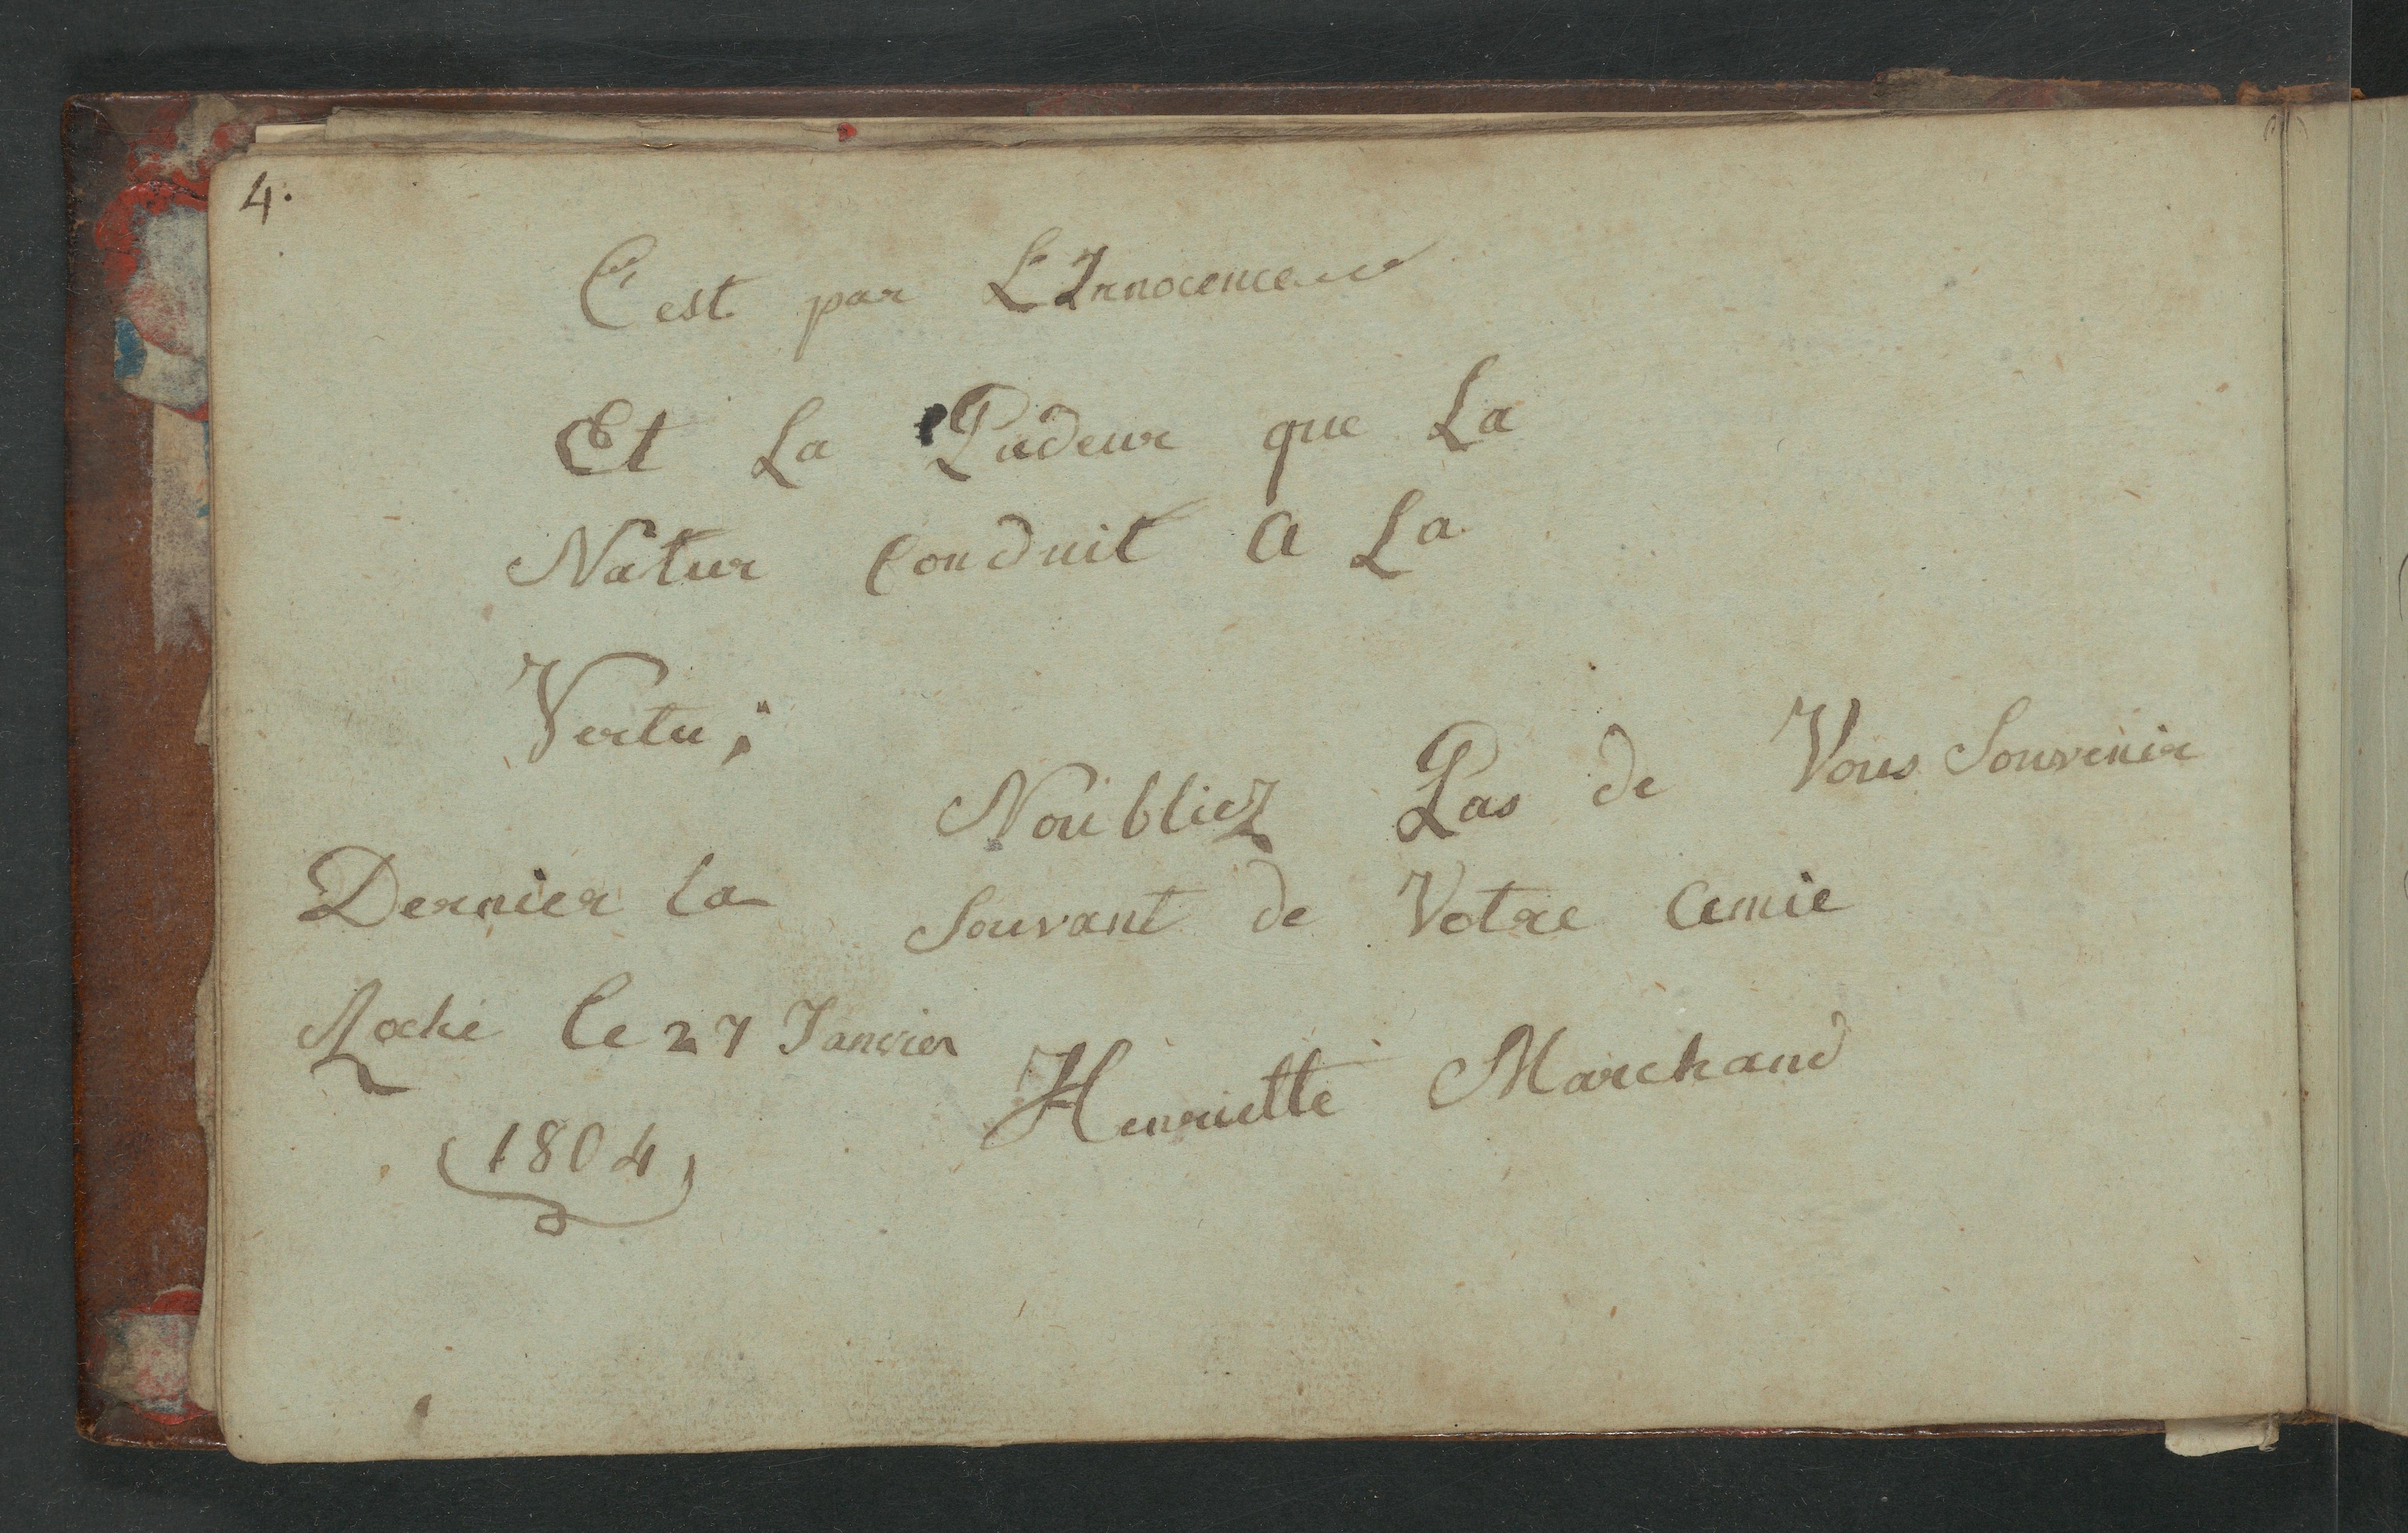 4.
C'est par L'Innocence
Et La Pudeur que La
Natur Conduit a La
Vertu ;
Noübliez Pas de Vous Souvenir
Souvant de Votre amie
Henriette Marchand
Dernier la
Roche le 27 Janvier
1804